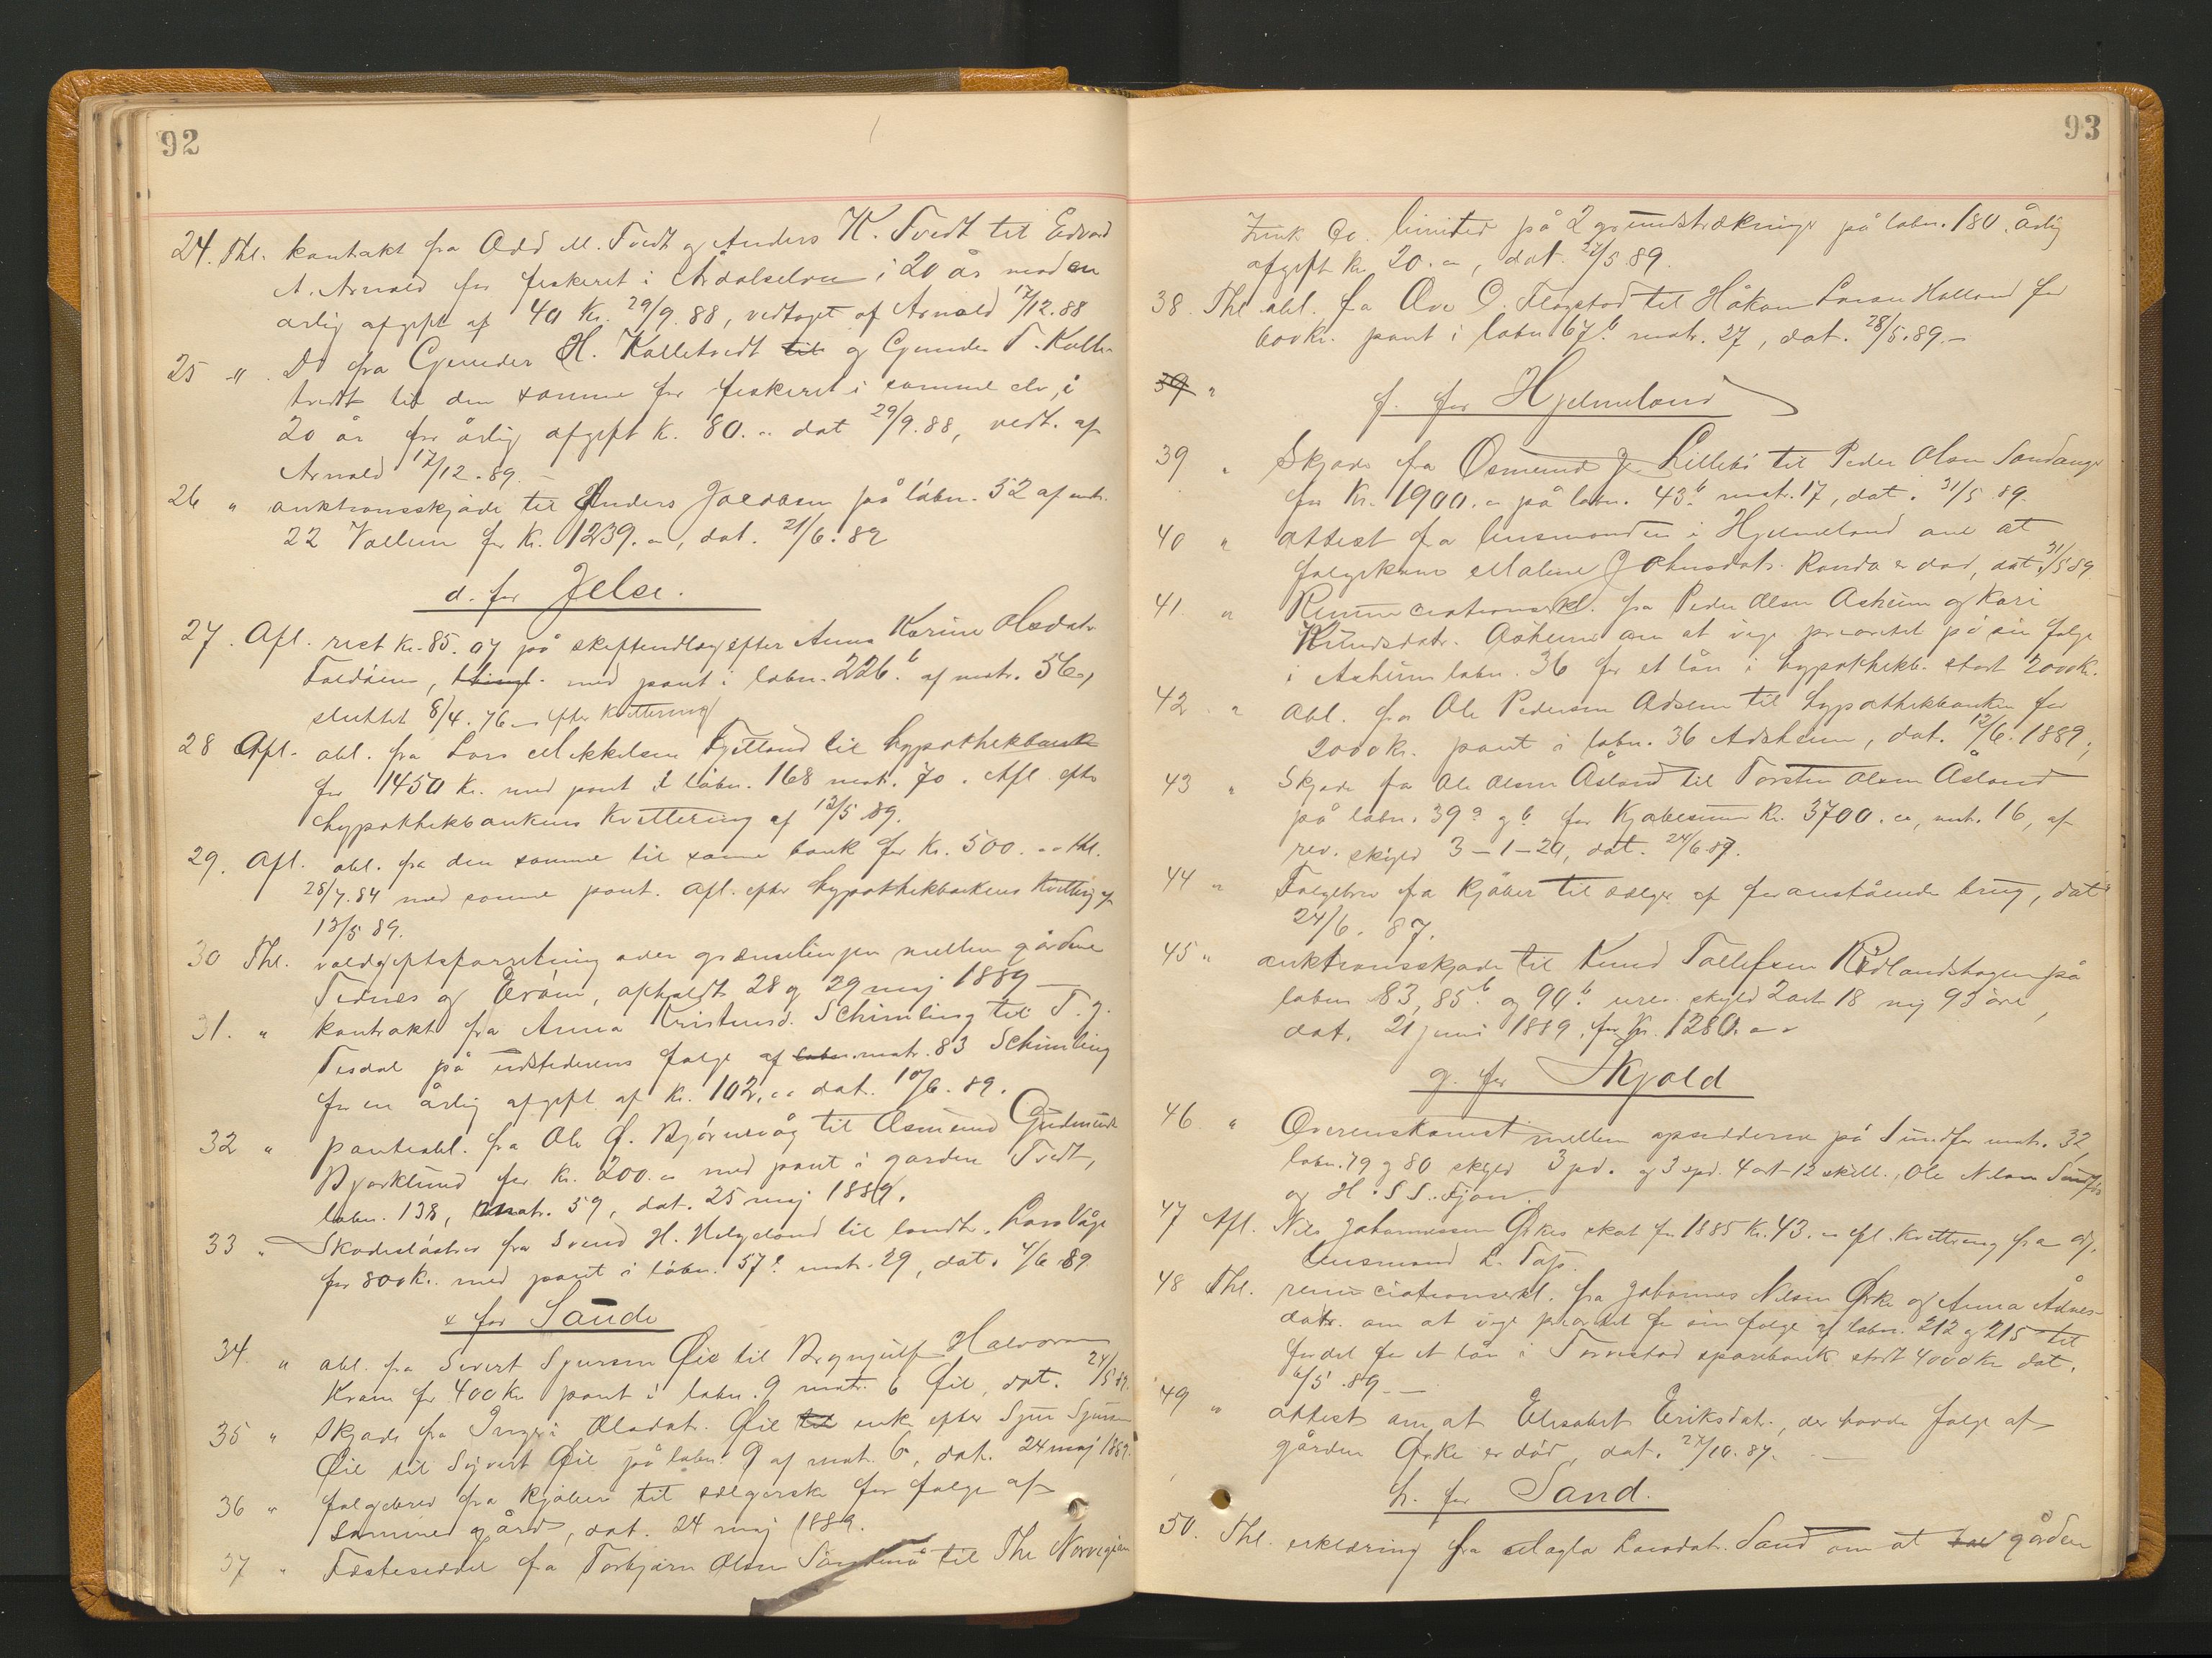 92
24. Thl. kontrakt fra Odd M. Tvedt og Anders K. Tvedt til Edvard
A. Arnold for fiskeret i Årdalselven i 20 år mod en
årlig afgift af 40 Kr. 29/9.88, vedtaget af Arnold 17/12.88
25 " Do fra Gunder H. Kalletvedt til og Gunder T. Kalle-
tvedt til den samme for fiskeret i samme elv, i
20 år for årlig afgift k. 80. " dat 29/9.88, vedt. af
Arnold 17/12.89. –
26 " auktionsskjøde til Anders på løbn. 52 af mtr.
22 Vallem for kr. 1239. ", dat. 21/6.89
d. for Jelse.
27. Afl. rest kr. 85.07 på skifteudlæg efter Anna Karine Olsdatr
Foldøen, thingl. med pant i løbn. 226b. af matr. 56,
sluttet 8/4.76 – efter kvittering
28 Afl. obl. fra Lars Mikkelsen til hypothekbank
for 1450 kr. med pant i løbn. 168 matr. 70. Afl efter
hypothekbankens kvittering af 13/5.89.
29. Afl. obl. fra den samme til samme bank for kr. 500. " thl.
28/7.84 med samme pant. Afl. efter hypothekbankens kvittrg af
13/5 89.
30 Thl. voldgiftsforretning over grænselinjen mellem gårdene
Tednes og , afholdt 28 og 29 maj 1889 –
31. " kontrakt fra Anna Kristensd. Schimling til T. J.
Tesdal på udstederens folge af løbn. matr. 83 Schimling
for en årlig afgift af kr. 102. " dat. 10/6.89.
32 " panteobl. fra Ole Ø. Bjørnevåg til Asmund Gudmunds
Bjørklund for kr. 200. " med pant i garden Tvedt,
løbn. 138, matr. 59, dat. 25 maj 1889.
33 " Skadesløsbrev fra Svend H. Helgeland til landh. Lars Våge
for 800 kr. med pant i løbn. 57 matr. 29, dat. 4/6 89
e for Saude
34. " obl. fra Sivert Sjursen Øie til Brynjulf Halvorsen
Kvam for 400 kr pant i løbn. 9 matr. 6 Øie, dat. 24/5 89.
35 " Skjøde fra Ingeri Olsdat. Øie til enke efter Sjur Sjursen
Øie til Sijvert Øie på løbn. 9 af matr. 6, dat. 24 maj 1889.
36 " folgebrev fra kjøber til sælgerske for folge af
samme gård, dat. 24 maj 1889.
37 " Fæsteseddel fra Torbjørn Olsen til The Norwegian
93
Zink Co. limited på 2 grundstrækninger på løbn. 180. Årlig
afgift kr 20. ", dat. 27/5 89.
38. Thl obl. fra Ove O. Flogstad til Håkon Larsen Holland for
600 kr. pant i løbn 67b. matr. 27, dat. 28/5.89. –
39 "
f. for Hjelmeland
39 " Skjøde fra Osmund J. Lillebø til Peder Olsen Sandanger
for Kr. 1900. " på løbn. 43b. matr. 17, dat. 31/5 89.
40 " attest fra lensmanden i Hjelmeland om at
folgekone Maline Johnsdatr. Randa er død, dat. 31/5 89
41. " Renunciationserkl. fra Peder Olsen Asheim og Kari
Knudsdatr. Asheim om at vige prioritet på sin folge
i Asheim løbn. 36 for et lån i hypothekb. stort 2000 kr.
42. " obl. fra Ole Pedersen Adsem til hypothekbanken for
2000 kr. pant i løbn. 36 Adsheim, dat. 12/6. 1889.
43 " Skjøde fra Ole Olsen Åsland til Torsten Olsen Åsland
på løbn. 39a og b for Kjøbesum kr. 3700. ", matr. 16, af
rev. skyld 3–1–20, dat. 24/6.87.
44 " Folgebrev fra kjøber til sælger af foranstående brug, dat
24/6. 87.
45 " auktionsskjøde til Knud Tollefsen Rødlandshagen på
løbn 83, 85b. og 90b. urev. skyld 2 ort 18 ny 93 øre,
dat. 21 juni 1889. for kr. 1280. "
g. for Skjold
46 " Overenskomst mellem opsidderne på Sundfør matr. 32,
løbn. 79 og 80 skyld 3 pd. og 3 spd. 4 ort – 12 skill. Ole Nilsen Sundfør
og H. S S. Fjon.
47 Afl. Nils Johannessen Ørkes skat for 1885 kr. 43. " afl. kvittering fra
lensmand L. .
48 Thl. renunciationserkl. fra Johannes Nilsen Ørke og Anna Ådnes-
datr. om at vige prioritet for sin folge af løbn. 212 og 215 til
fordel for et lån i Torvestad sparebank stort 4000 kr dat.
6/5 .89 –
49 " attest om at Elisabet Eriksdatr., der havde folge af
gården Ørke er død, dat. 27/10.87. –
h. for Sand.
50. Thl. erklæring fra Magla Larsdatr. Sand om at gården